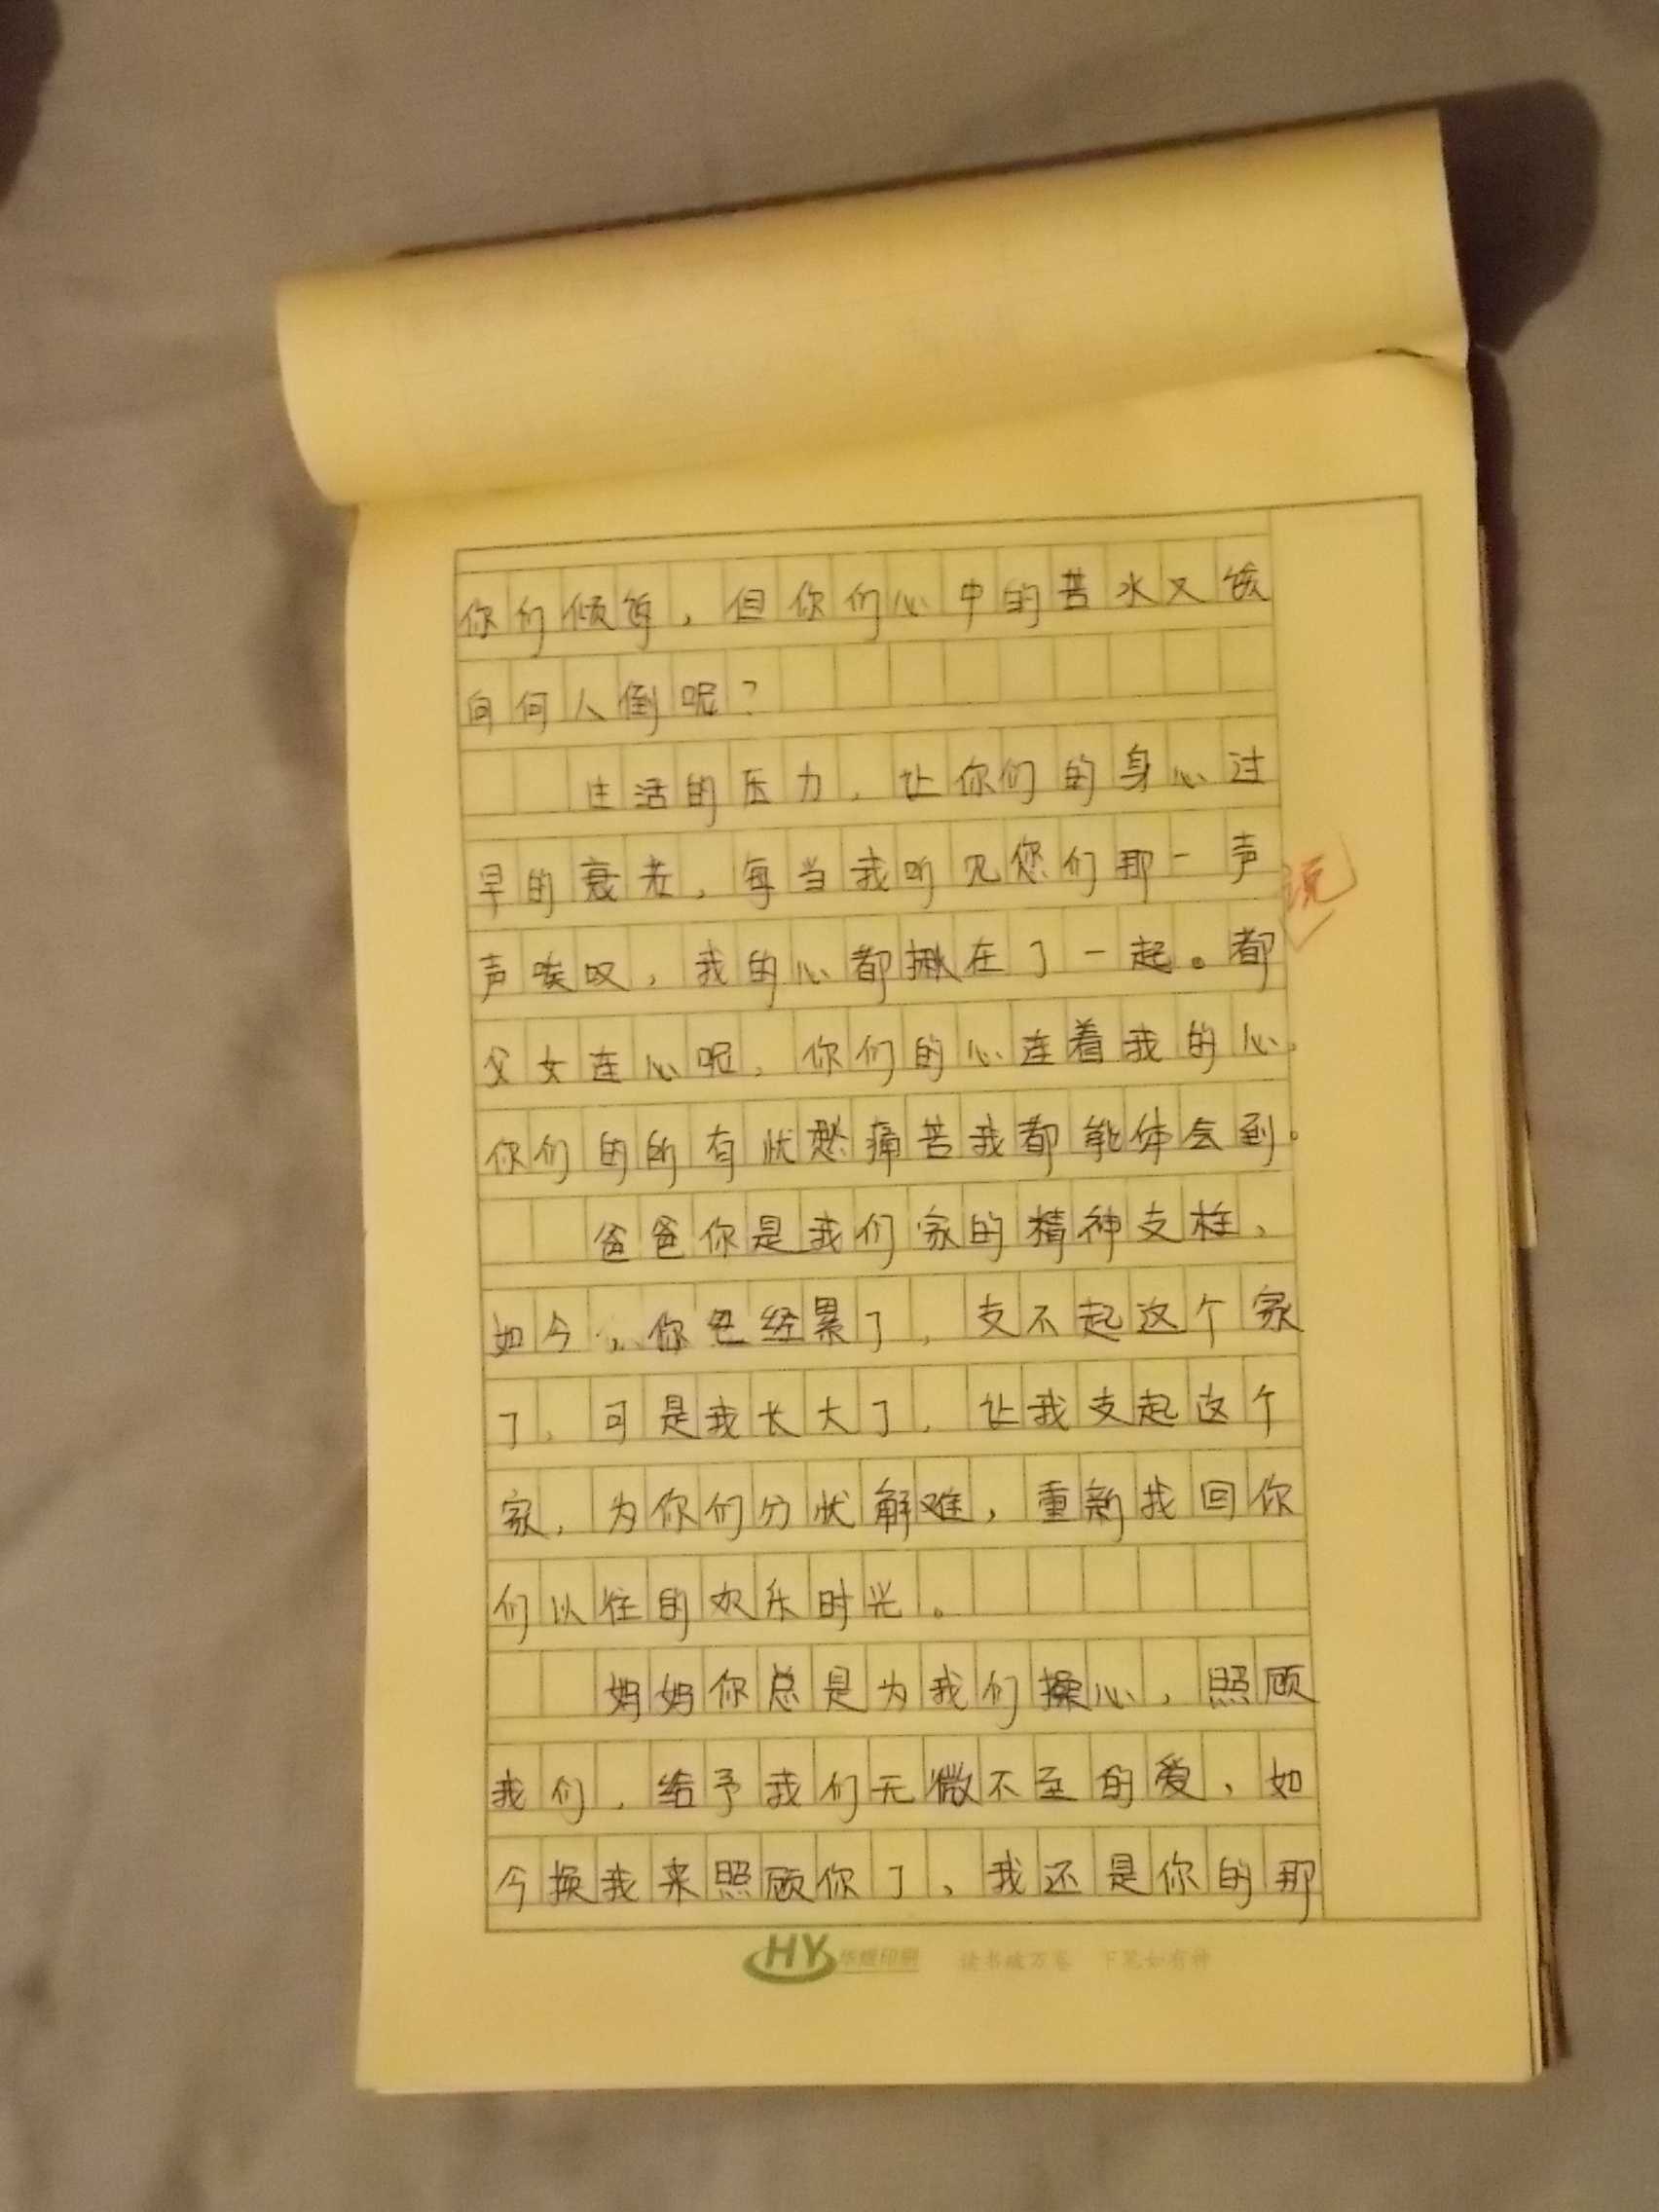 你们倾诉，但你们心中的苦水又该
向何人倒呢？
生活的压力，让你们的身心过
早的衰老，每当我听见您们那一声
声唉叹，我的心都揪在了一起。都
说
父女连心呢，你们的心连着我的心，
你们的所有忧愁痛苦我都能体会到。
爸爸你是我们家的精神支柱，
如今，你已经累了，支不起这个家
了，可是我长大了，让我支起这个
家，为你们分忧解难，重新找回你
们以往的欢乐时光。
妈妈你总是为我们操心，照顾
我们，给予我们无微不至的爱，如
今换我来照顾你了，我还是你的那
HY 华辉印刷 读书破万卷 下笔如有神